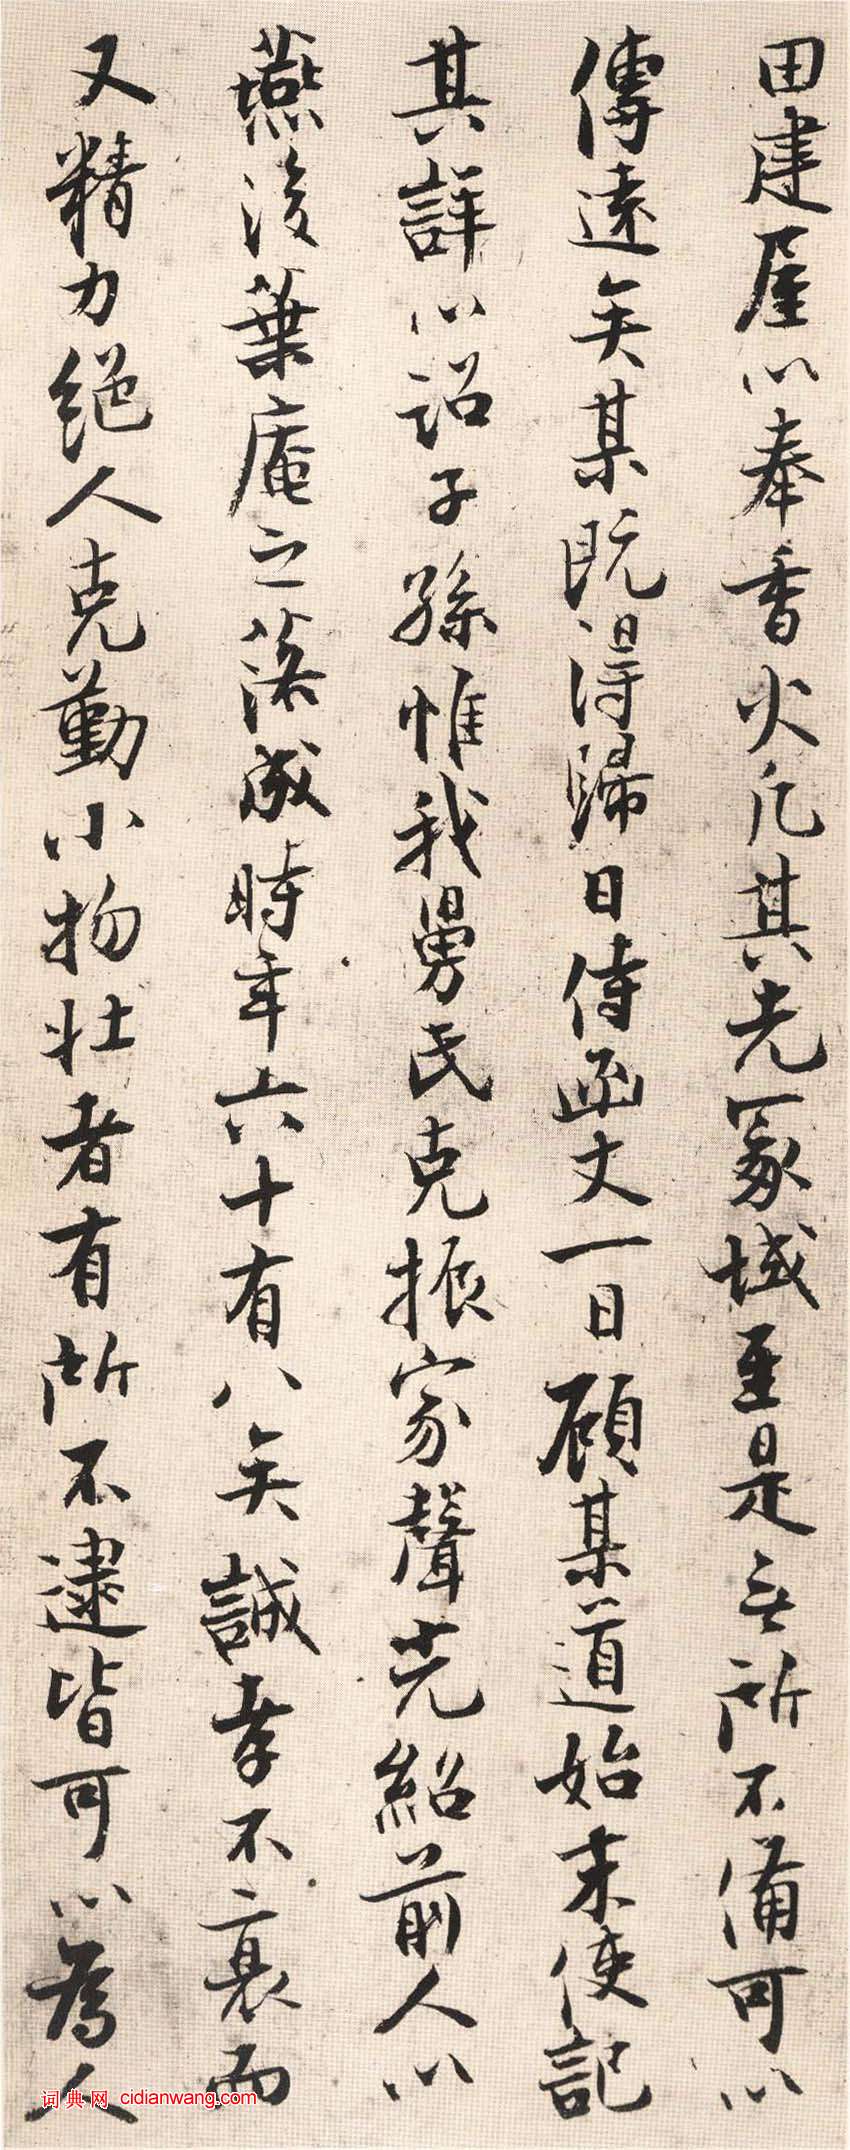 田建屋以奉香火凡其先冢域至是無所不備可以
傳遠矣某既得歸日侍函丈一日顧某道始末使記
其詳以詔子孫惟我舅氏克振家聲光紹前人以
燕後葉庵之落成時年六十有八矣誠孝不衰而
又精力絕人克勤小物壯者有所不逮皆可以為人
词典网 cidianwang.com